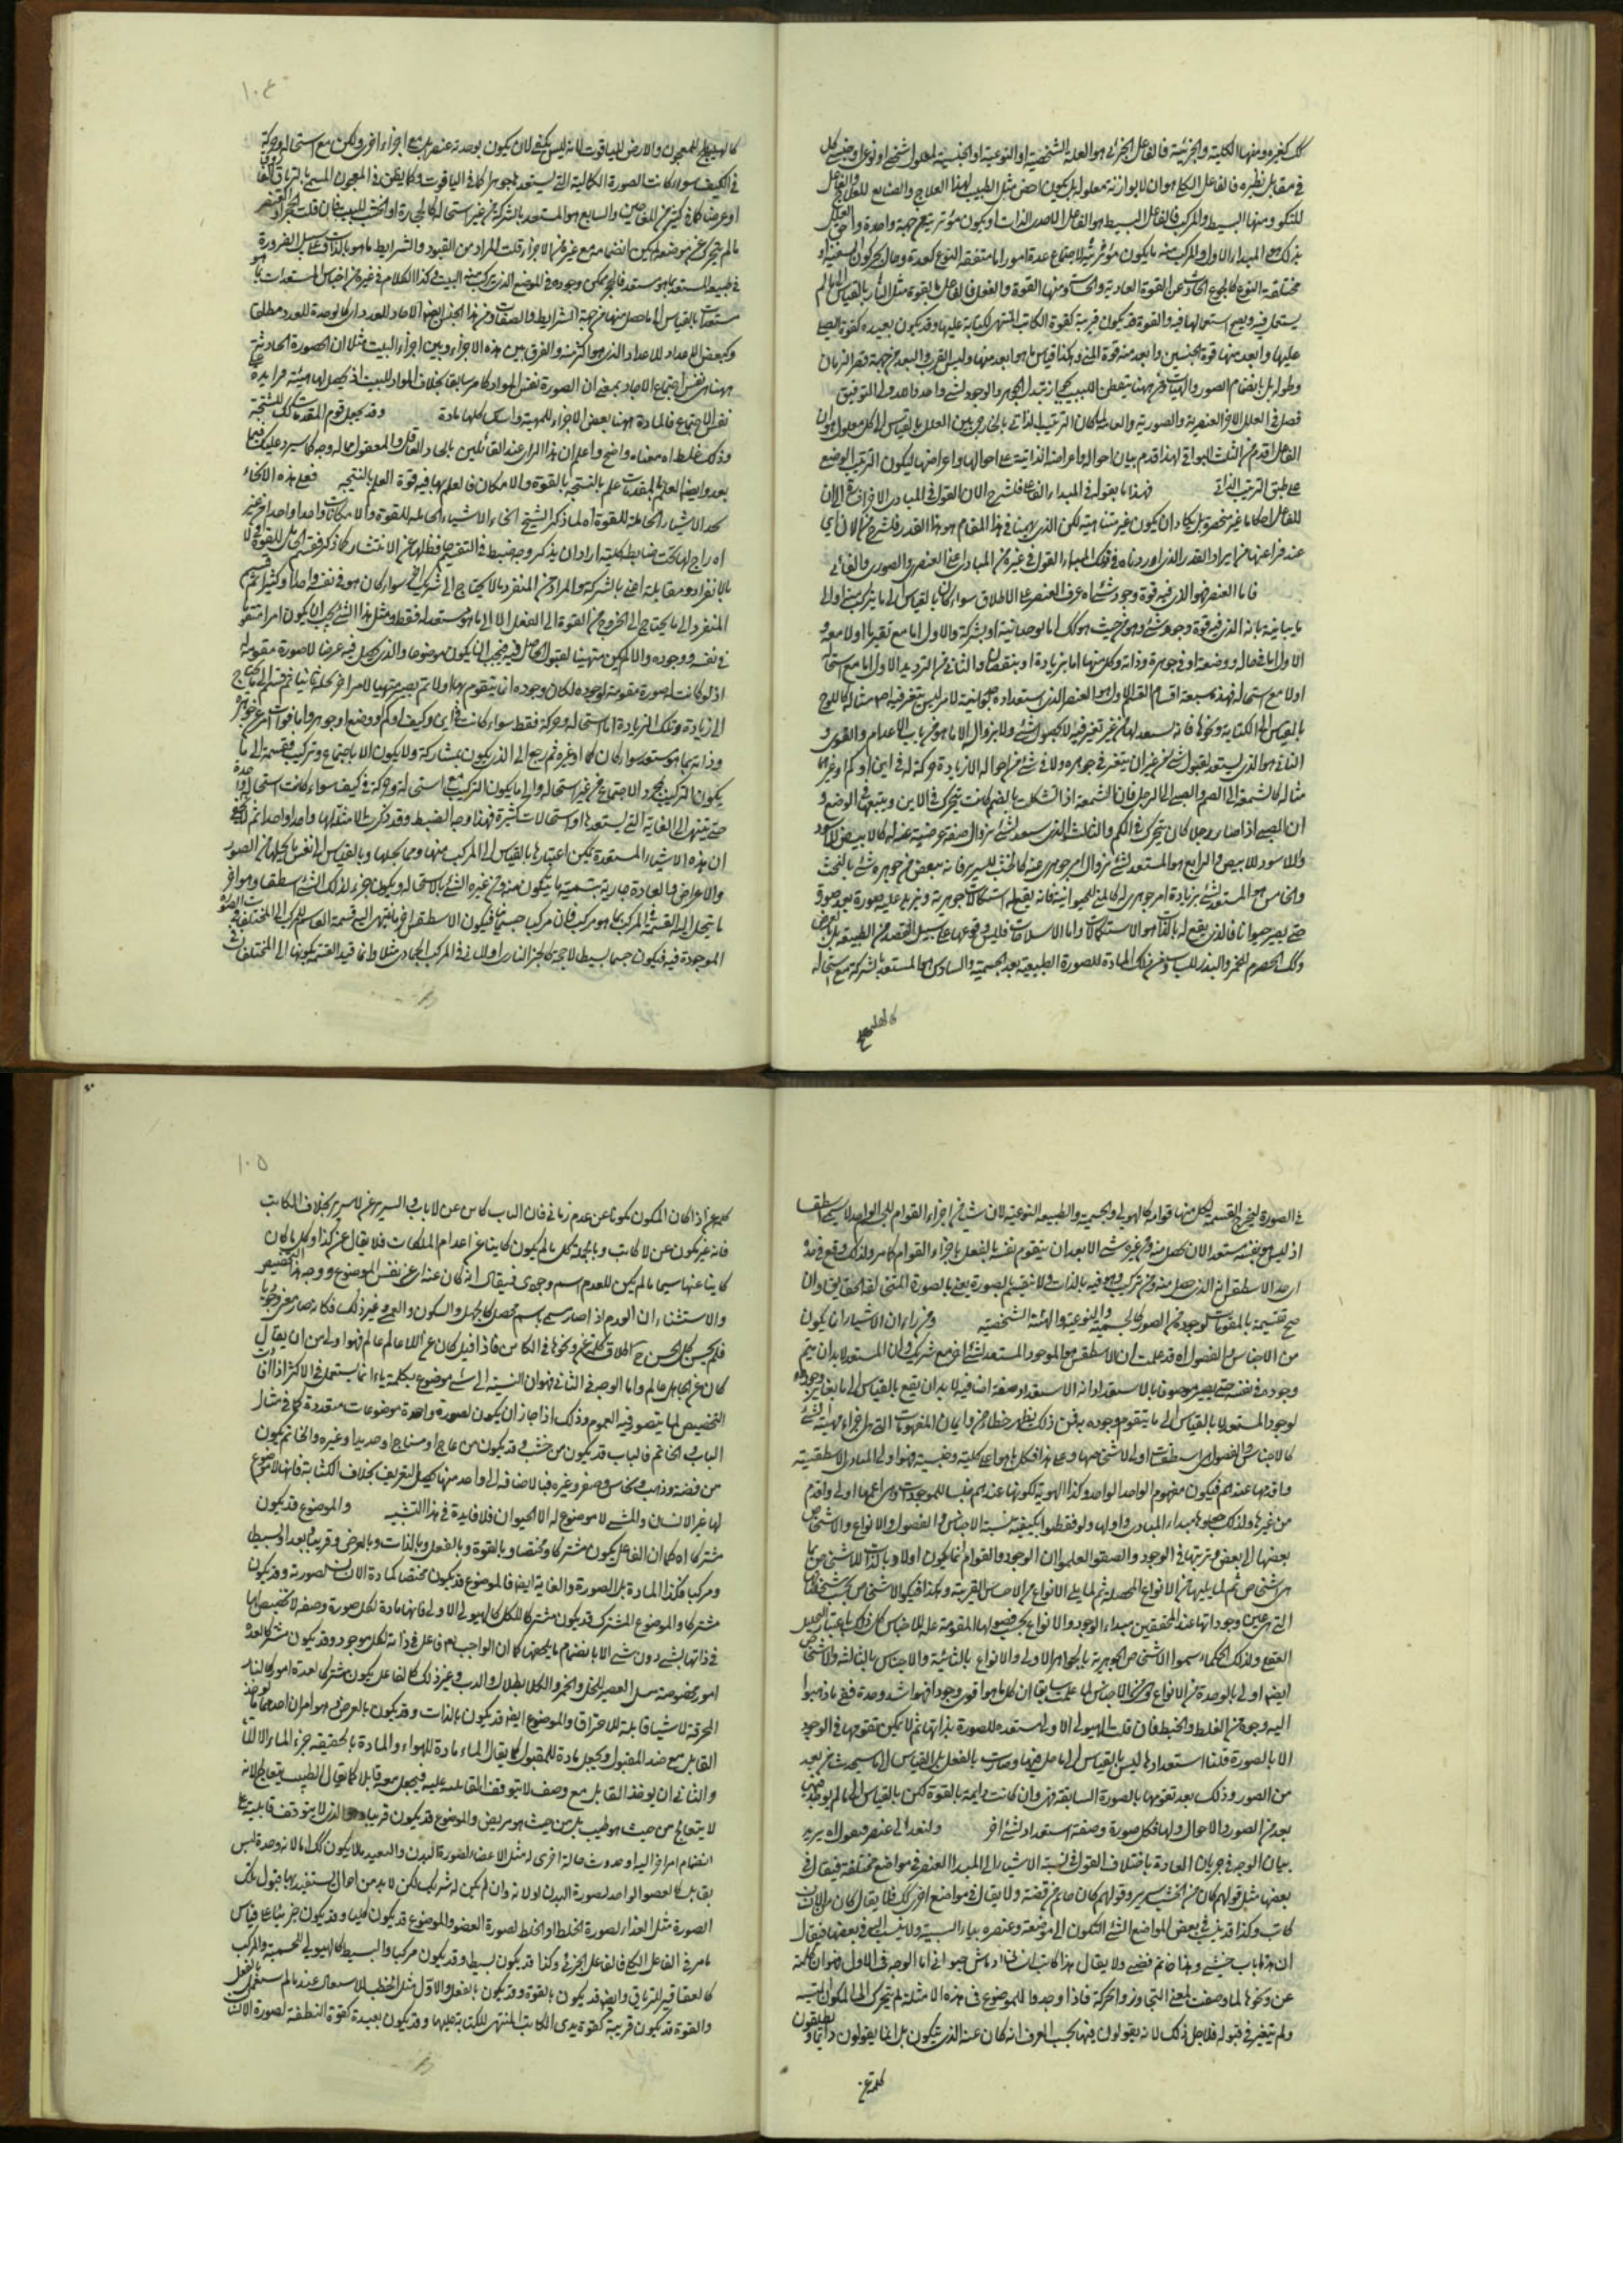 كك كغيره ومنها الكلية والجزئية فالفاعل الجزئى هو العلة الشخصية او النوعية او الجنسية لمعلول شخصى او نوعى او جنسى كل
فى مقابل نظيره فالفاعل الكلى هو ان لا يوازنه معلوله بل يكون اخص مثل الطبيب لهذا العلاج والصانع للعلاج
ومنها البسيط والمركب فالفاعل البسيط هو الفاعل الاحدى الذات او يكون مؤثريته من جهة واحدة واحق
بذلك هو المبدأ الاول والمركب منه ما يكون مؤثريته لاجتماع عدة امور اما متفقة النوع كعدة رجال يحركون السفينة او
مختلفة النوع كالجوع الحادث عن القوة الجاذبة والحساسة ومنها القوة والفعل فالفاعل بالقوة مثل النار بالقياس الى ما لم
يشتعل فيه ويصح اشتعالها فيه والقوة قد يكون قريبة كقوة الكاتب المتهيئ للكتابة عليها وقد يكون بعيدة كقوة الصبى
عليها وابعد منها قوة الجنين وابعد منه قوة المنى وهكذا قياس ما هو ابعد منها وليس القرب والبعد من جهة قصر الزمان
وطوله بل بانضمام الصور والهيئات ومن ههنا يتفطن اللبيب بجواز تبدل الجوهر والوجود لشىء واحد والله ولى التوفيق
فصل فى العلل الاخر العنصرية والصورية والغائية لما كان الترتيب الذاتى الخارجى بين العلل بالقياس الى كل معلول هو ان
الفاعل اقدم من الثلث البواقى لهذا قدم بيان احواله واعراضه الذاتية على احوالها واعراضها ليكون الترتيب الوضعى
على طبق الترتيب الذاتى فهذا ما نقوله فى المبدأ الفاعلى فلنشرح الان القول فى المبادى الاخرى
للفاعل احكاما غير منحصرة بل يكاد ان يكون غير متناهية لكن الذى يهمنا فى هذا المقام هو هذا القدر فلنشرح من الان اى
عند فراغنا من ايراد القدر الذى اوردناه فى تلك المبدأ القول فى غيره من المبادى اعنى العنصرى والصورى والغائى
فاما العنصر فهو الذى فيه قوة وجود شىء اه عرف العنصر على الاطلاق سواء كان بالقياس الى ما يتركب منه او الى
ما يباينه بانه الذى فيه قوة وجود شىء وهو من حيث هو كك اما بوحدانيته او بشركة والاول اما مع تغير ما اولا معه و
الاول اما فى حاله ووضعه او فى جوهره وذاته وكل منهما اما بزيادة او بنقصان والثانى من الترديد الاول اما مع استحالة
اولا مع استحالة فهذه سبعة اقسام القسم الاول هو العنصر الذى استعداده بوحدانيته لامر ليس بتغير فيه اصلا مثاله كاللوح
بالقياس الى الكتابة ونحوها فانه يستعد لها من غير تغير فيه لا بحصول شىء ولا بزوال الا ما هو من باب الاعدام والقوى و
الثانى هو الذى يستعد لقبول شىء من غير ان يتغير فى جوهره ولا فى شىء من احواله الا زيادة حركة له فى اين او كم او غيرها
مثاله كالشمعة الى الصنم والصبى الى الرجل فان الشمعة اذا اشكلت بالصنم كانت تتحرك فى الاين ويتبعها فى الوضع و
ان الصبى اذا صار رجلا كان يتحرك فى الكم والثالث الذى يستعد لشىء بزوال صفة عرضية عنه له كالابيض للاسود
والاسود للابيض والرابع هو المستعد لشىء بزوال امر جوهرى عنه كالخشب للسرير فانه ينقص من جوهره شىء بالنحت
والخامس هو المستعد لشىء بزيادة امر جوهرى له كالمنى للحيوانية فانه يقع له استكمالات جوهرية ويزيد عليه صورة بعد صورة
حتى يصير حيوانا فالذى يقع له بالذات هو الاستكمالات واما الانسلاخات فليس وقوعها على سبيل القصد من الطبيعة بل بالعرض
وكك الحصرم للخمر والبذر للنبات ومن ذلك المادة للصورة الطبيعية بعد الجسمية والسادس هو المستعد بالشركة مع استحالة
كاهليلج
١٠٤
كالهليلج للمعجون والارض للياقوت لانه ليس يكفى لان يكون بوحدته عنصرا بل مع اجزاء اخرى ولكن مع استحالة وحركة
فى الكيف سواء كانت الصورة الكمالية التى يستعد لها جوهرا كما فى الياقوت وكما يظن فى المعجون المسمى بالترياق الفاروق
او عرضا كما فى كثير من المعاجين والسابع هو المستعد بالشركة من غير استحالة كالحجارة والخشب للبيت فان قلت
ما لم يتحرك عن موضعه لم يكن انضمامه مع غيره من الاجزاء قلت المراد من القيود والشرايط ما هو بالذات وعلى سبيل الضرورة
فى طبيعة المستعد بما هو مستعد فالحجر يمكن وجوده فى الموضع الذى يتركب منه البيت وكذا الكلام فى غيره من اجناس المستعدات بما هو
مستعدات بالقياس الى ما حصل منها من جهة الشرايط والصفات ومن هذا الجنس ايضا الاحاد للعدد اى كالوحدة للعدد مطلقا
وكبعض الاعداد للاعداد الذى هو اكثر منه والفرق بين هذه الاجزاء وبين اجزاء البيت مثلا ان الصورة الحادثة
ههنا هى نفس اجتماع الاحاد بمعنى ان الصورة نفس المواد كما مر سابقا بخلاف المواد للبيت اذ يحصل لها هيئة زايدة على
نفس الاجتماع فالمادة ههنا بعض الاجزاء للمهية وان كان كلها مادة وقد يجعل قوم المقدمات كك للنتيجة
وذلك غلط اه معناه واضح واعلم ان هذا المراد عند القائلين باتحاد العاقل والمعقول محال وجه كما سيرد عليك فيما
بعد وايضا العلم بالمقدمات علم بالنتيجة بالقوة والامكان فالعلم بها فيه قوة العلم بالنتيجة فعلى هذه الانحاء
نجد الاشياء الحاملة للقوة اه لما ذكر الشيخ انحاء الاشياء الحاملة للقوة والامكانات واحدا واحدا من غير
ادراجها تحت ضابطة كلية اراد ان يذكر وجه ضبط فى التقسيم حفظا لها عن الانتشار كما ذكر فقسم الحامل للقوة
بالانفراد ومقابله اعنى بالشركة والمراد من المنفرد ما لا يحتاج الى شريك اخر سواء كان هو فى نفسه واحدا او كثيرا ثم قسم
المنفرد الى ما يحتاج الى الخروج من القوة الى الفعل الا الى ما هو مستعد له فقط ومثل هذا الشىء يجب ان يكون امرا متقوما
فى نفسه ووجوده والا لم يكن متهيئا لقبول الحاصل فيه فيجب ان يكون موضوعا والذى يحصل فيه عرضا لا صورة مقومة له
اذ لو كانت صورة مقومة لوجوده لكان وجوده انما يتقوم بها اولا ثم يصير متهيئا لامر اخر يحله ثانيا ثم قسم الى ما يحتاج
الى زيادة وتلك الزيادة اما استحالة وحركة فقط سواء كانت فى اين او كيف او كم او وضع او جوهر واما فوات امر عن جوهره
وذاته بما هو مستعد سواء كان كما او غيره ثم رجع الى الذى يكون بمشاركة ولا يكون الا باجتماع وتركيب فقسمه الى ما
يكون التركيب مجرد الاجتماع من غير استحالة والى ما يكون التركيب مع استحالة وحركة فى كيف سواء كانت استحالة واحدة
حتى ينتهى الى الغاية التى يستعد لها او استحالات كثيرة فهذا وجه الضبط وقد ذكرت الامثلة لها واحدا واحدا ثم
ان هذه الاشياء المستعدة يمكن اعتبارها بالقياس الى المركب منها ومما يحلها وبالقياس الى نفس ما يحلها من الصور
والاعراض والعادة جارية بتسمية ما يتكون منه ومن غيره الشىء بالاستحالة ويكون جزء لذلك الشىء اسطقسا وهو اخر
ما يتحلل اليه القسمة فى المركب بما هو مركب فان كان مركبا جسميا فيكون الاسطقس اخر ما ينتهى اليه قسمة القاسم للمركب الى المختلفات الصور
الموجودة فيه فيكون جسما بسيطا لا محة كالجزء النارى او المائى فى المركب الجمادى مثلا وانما قيد القسمة بكونها الى المختلفات
فى الصورة ليخرج القسمة لكل منها قوامه كالهيولى والجسمية والطبيعة النوعية لان شيئا من اجزاء القوام للجسم الواحد لا يسمى اسطقسا
اذ ليس هو بنفسه مستعدا لان يحصل منه ومن غيره شىء الا بعد ان يتقوم نفسه بالفعل باجزاء القوام كما مر ولذلك وقع فى حده
ان حد الاسطقس انه الذى حصل منه ومن غيره تركيب وهو فيه بالذات ولا ينقسم بالصورة يعنى بالصورة
صح تقسيمه بالمقومات لوجوده من الصور كالجسمية والنوعية والهيئة الشخصية ومن راى ان الاشياء انما يكون
من الاجناس والفصول اه قد علمت ان الاسطقس هو الموجود المستعد لشىء اخر مع شريك وان المستعد لا بد ان يتم
وجوده فى نفسه حتى يصير موصوفا بالاستعداد اذ الاستعداد صفة اضافية لا بد ان يقع بالقياس الى ما يغاير وجوده
لوجود المستعد لا بالقياس الى ما يتقوم وجوده به فمن ذلك يظهر خطاء من راى ان المفهومات التى هى اجزاء مهية الشىء
كالاجناس والفصول هى اسطقسات اولى للاشخاص منها وعلى هذا فكل ما هو اعم كلية وجنسية فهو اولى المبادى الاسطقسية
واقدمها عندهم فيكون مفهوم الواحد الواحد وكذا الهوية لكونها عندهم جنسا للموجودات وهى اعمها اولى واقدم
من غيرها ولذلك جعلوها مبدأ المبادى واولها ولو تفطنوا بكيفية نسبة الاجناس والفصول والانواع والاشخاص
بعضها الى بعض وترتيبها فى الوجود وانصفوا لعلموا ان الوجود والقوام انما يكون اولا وبالذات للاشخاص بما
هى اشخاص ثم لما يليها من الانواع المحصلة ثم لما يلى الانواع من الاجناس القريبة وهكذا فيكون الاشخاص بحسب تشخصاتها
التى هى عين وجوداتها عند المحققين مبدأ وجود الانواع بحسب فصولها المقومة علة للاجناس كل ذلك باعتبار التحليل
العقلى ولذلك الحكماء سموا الاشخاص الجوهرية بالجواهر الاولى والانواع بالثانية والاجناس بالثالثة والاشخاص
ايضا اولى بالوحدة من الانواع وهى من الاجناس لما علمت سابقا ان كل ما هو اقوى وجودا فهو اشد وحدة ففى ما ذهبوا
اليه وجوه من الغلط والخبط فان قلت الهيولى الاولى مستعدة للصورة بذاتها ثم لا يمكن تقومها فى الوجود
الا بالصورة قلنا استعدادها ليس بالقياس الى ما حصل فيها وصارت بالفعل بل بالقياس الى ما سيحدث من بعد
من الصور وذلك بعد تقومها بالصورة السابقة فهى وان كانت دايمة بالقوة لكن بالقياس الى ما لم يوجد فيها
بعد من الصور والاحوال ولها فى كل صورة وصفة استعداد لشىء اخر ولنعد الى عنصر فنقول اه يريد
بيان الوجه فى جريان العادة باختلاف القول فى نسبة الاشياء الى المبدأ العنصرى فى مواضع مختلفة فيقال فى
بعضها مثل قولهم كان من الخشب سرير وقولهم كان خاتم من فضة ولا يقال فى مواضع اخرى كك فلا يقال كان من الانسان
كاتب وكذا قد ينسب فى بعض المواضع الشىء المتكون الى موضوعه وعنصره بياء النسبة ولا ينسب اليه فى بعضها فيقال
ان هذا باب خشبى وهذا خاتم فضى ولا يقال هذا كاتب انسانى او ماش حيوانى اما الوجه فى الاول فهو ان كلمة
عن ونحوها لما وضعت لمعنى التجاوز والحركة فاذا وجدوا الموضوع فى هذه الامثلة لم يتحرك الى المكون منه
ولم يتغير فى قبوله فلاجل ذلك لا يقولون فيها بحسب العرف انه كان عنه الذى يتكون بل انما يقولون دايما ويطلقون
كلمة عن
١٠٥
كلمة عن اذا كان المكون مكونا عن عدم زمانى فان الباب كان عن لا باب والسرير عن لا سرير بخلاف الكاتب
فانه غير مكون عن لا كاتب وبالجملة كل ما لم يكون كاينا عن اعدام الملكات فلا يقال عن كذا وكل ما كان
كاينا عنها سيما ما لم يكن للعدم اسم وجودى فيقال انه كان عنه اى عن نفس الموضوع ووجه هذا التخصيص
والاستثناء ان العدم اذا صار مسمى باسم محصل كالجهل والسكون والعمى وغير ذلك فكانه صار معنى وجوديا
فلم يحسن كل الحسن ح اطلاق كلمة عن ونحوها فى الكاين فاذا قيل كان عن اللاعالم عالم فهو اولى من ان يقال
كان عن الجاهل عالم واما الوجه فى الثانى فهو ان النسبة الى شىء موضوع بكلمة ياء انما يستعمل فى الاكثر اذا افادت
التخصيص لما يتصور فيه العموم وذلك اذا جاز ان يكون لصورة واحدة موضوعات متعددة كما فى مثال
الباب والخاتم فالباب قد يكون من خشب وقد يكون من عاج او من ساج او حديد او غيره والخاتم يكون
من فضة وذهب ونحاس وصفر وغيره فبالاضافة الى واحد منها يحصل التعريف بخلاف الكتابة فانها لا موضوع
لها غير الانسان والمشى لا موضوع له الا الحيوان فلا فايدة فى هذا التنسيب والموضوع قد يكون
مشتركا اه كما ان الفاعل يكون مشتركا ومختصا وبالقوة وبالفعل وبالذات وبالعرض وقريبا وبعيدا وبسيطا
ومركبا فكذا المادة بل الصورة والغاية ايضا فالموضوع قد يكون مختصا كمادة الانسان لصورته وقد يكون
مشتركا والموضوع المشترك قد يكون مشتركا للكل كالهيولى الاولى فانها مادة لكل صورة وصفة لا تخصيص لها
فى ذاتها بشىء دون شىء الا بانضمام ما يخصها كما ان الواجب تع فاعل فى ذاته لكل موجود وقد يكون مشتركا لعدة
امور مخصوصة مثل العصير للخل والخمر والطلاء والرب وغير ذلك كالفاعل يكون مشتركا لعدة امور كالنار
المحرقة لاشياء قابلة للاحتراق والموضوع ايضا قد يكون بالذات وقد يكون بالعرض وهو امران احدهما اخذ
القابل مع ضد المقبول ويجعل مادة للمقبول كما يقال الماء مادة للهواء والمادة بالحقيقة جزء الماء لا الماء
والثانى ان يوخذ القابل مع وصف لا يتوقف المقابلة عليه فيجعل معه قابلا كما يقال الطبيب يتعالج لانه
لا يتعالج من حيث هو طبيب بل من حيث هو مريض والموضوع قد يكون قريبا وهو الذى لا يتوقف قابليته على
انضمام امر اخر اليه او حدوث حالة اخرى له مثل الاعضاء لصورة البدن والبعيد ما لا يكون كك اما لانه وحده ليس
بقابل كالعضو الواحد لصورة البدن او لانه وان لم يكن له شريك لكن لا بد من احوال يستفيد بها قبول تلك
الصورة مثل الغذاء لصورة الخلط او الخلط لصورة العضو والموضوع قد يكون كليا وقد يكون جزئيا على قياس
ما مر فى الفاعل الكلى والفاعل الجزئى وكذا قد يكون بسيطا وقد يكون مركبا والبسيط كالهيولى للجسمية والمركب
كالعقاقير للترياق وايضا قد يكون بالقوة وقد يكون بالفعل والاول مثل الخطب للاشتعال عند ما لم يشتعل بالفعل
والقوة قد يكون قريبة كقوة يدى الكاتب المتهيئ للكتابة عليها وقد يكون بعيدة كقوة النطفة لصورة الانسان